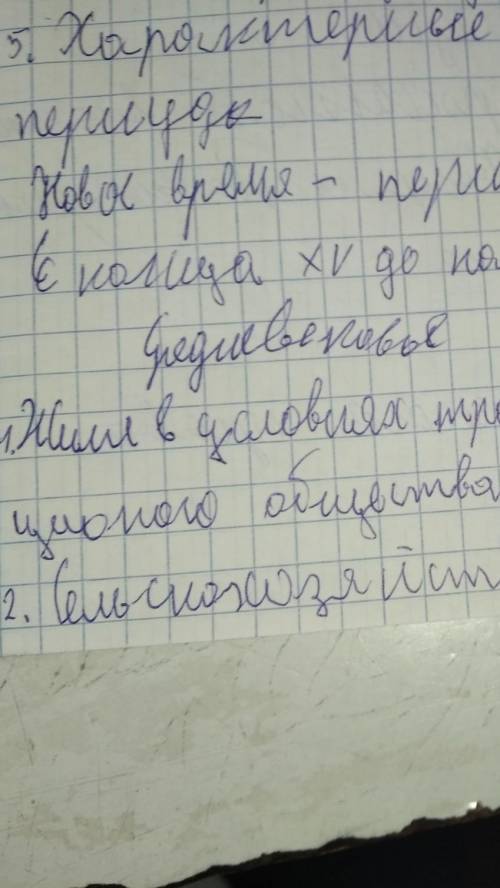 5. Характерные
периуды
Новое время - пери
С конца XV до на
Средневековье
1. Жили в условиях тра
ционого общества
2. Сельскохозяйст